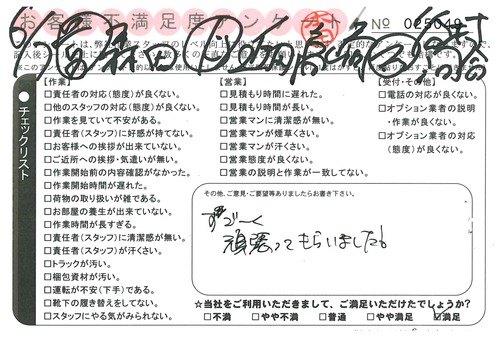 お客様不満足度アンケート
№ 025049
チェックリスト
【作業】
□責任者の対応(態度)が良くない。
□他のスタッフの対応(態度)が良くない。
□作業を見ていて不安がある。
□責任者(スタッフ)に好感が持てない。
□お客様への挨拶が出来ていない。
□ご近所への挨拶・気遣いが無い。
□作業開始前の内容確認がなかった。
□作業開始時間が遅れた。
□荷物の取り扱いが雑である。
□お部屋の養生が出来ていない。
□作業時間が長すぎる。
□責任者(スタッフ)に清潔感が無い。
□責任者(スタッフ)が汗くさい。
□トラックが汚い。
□梱包資材が汚い。
□運転が不安(下手)である。
□靴下の履き替えをしてない。
□スタッフにやる気がみられない。
【営業】
□見積もり時間に遅れた。
□見積もり時間が長い。
□営業マンに清潔感が無い。
□営業マンが煙草くさい。
□営業マンが汗くさい。
□営業態度が良くない。
□営業の説明と作業が一致してない。
【受付・その他】
□電話の対応が良くない。
□オプション業者の説明
・作業が良くない。
□オプション業者の対応
(態度)が良くない。
その他、ご意見・ご要望等ありましたらお書き下さい。
すご〜く
頑張ってもらいました。
☆当社をご利用いただきまして、ご満足いただけたでしょうか?
□不満 □やや不満 □普通 □やや満足 □満足